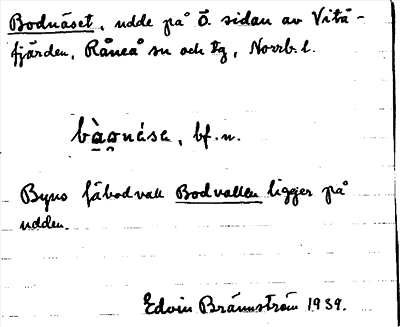 Bodnäset, udde på Ö. sidan av Vitå-
fjärden, Råneå sn och tg, Norrb. l.
bf. n.
Byns fäbodvall Bodvallen ligger på
udden.
Edvin Brännström 1939.